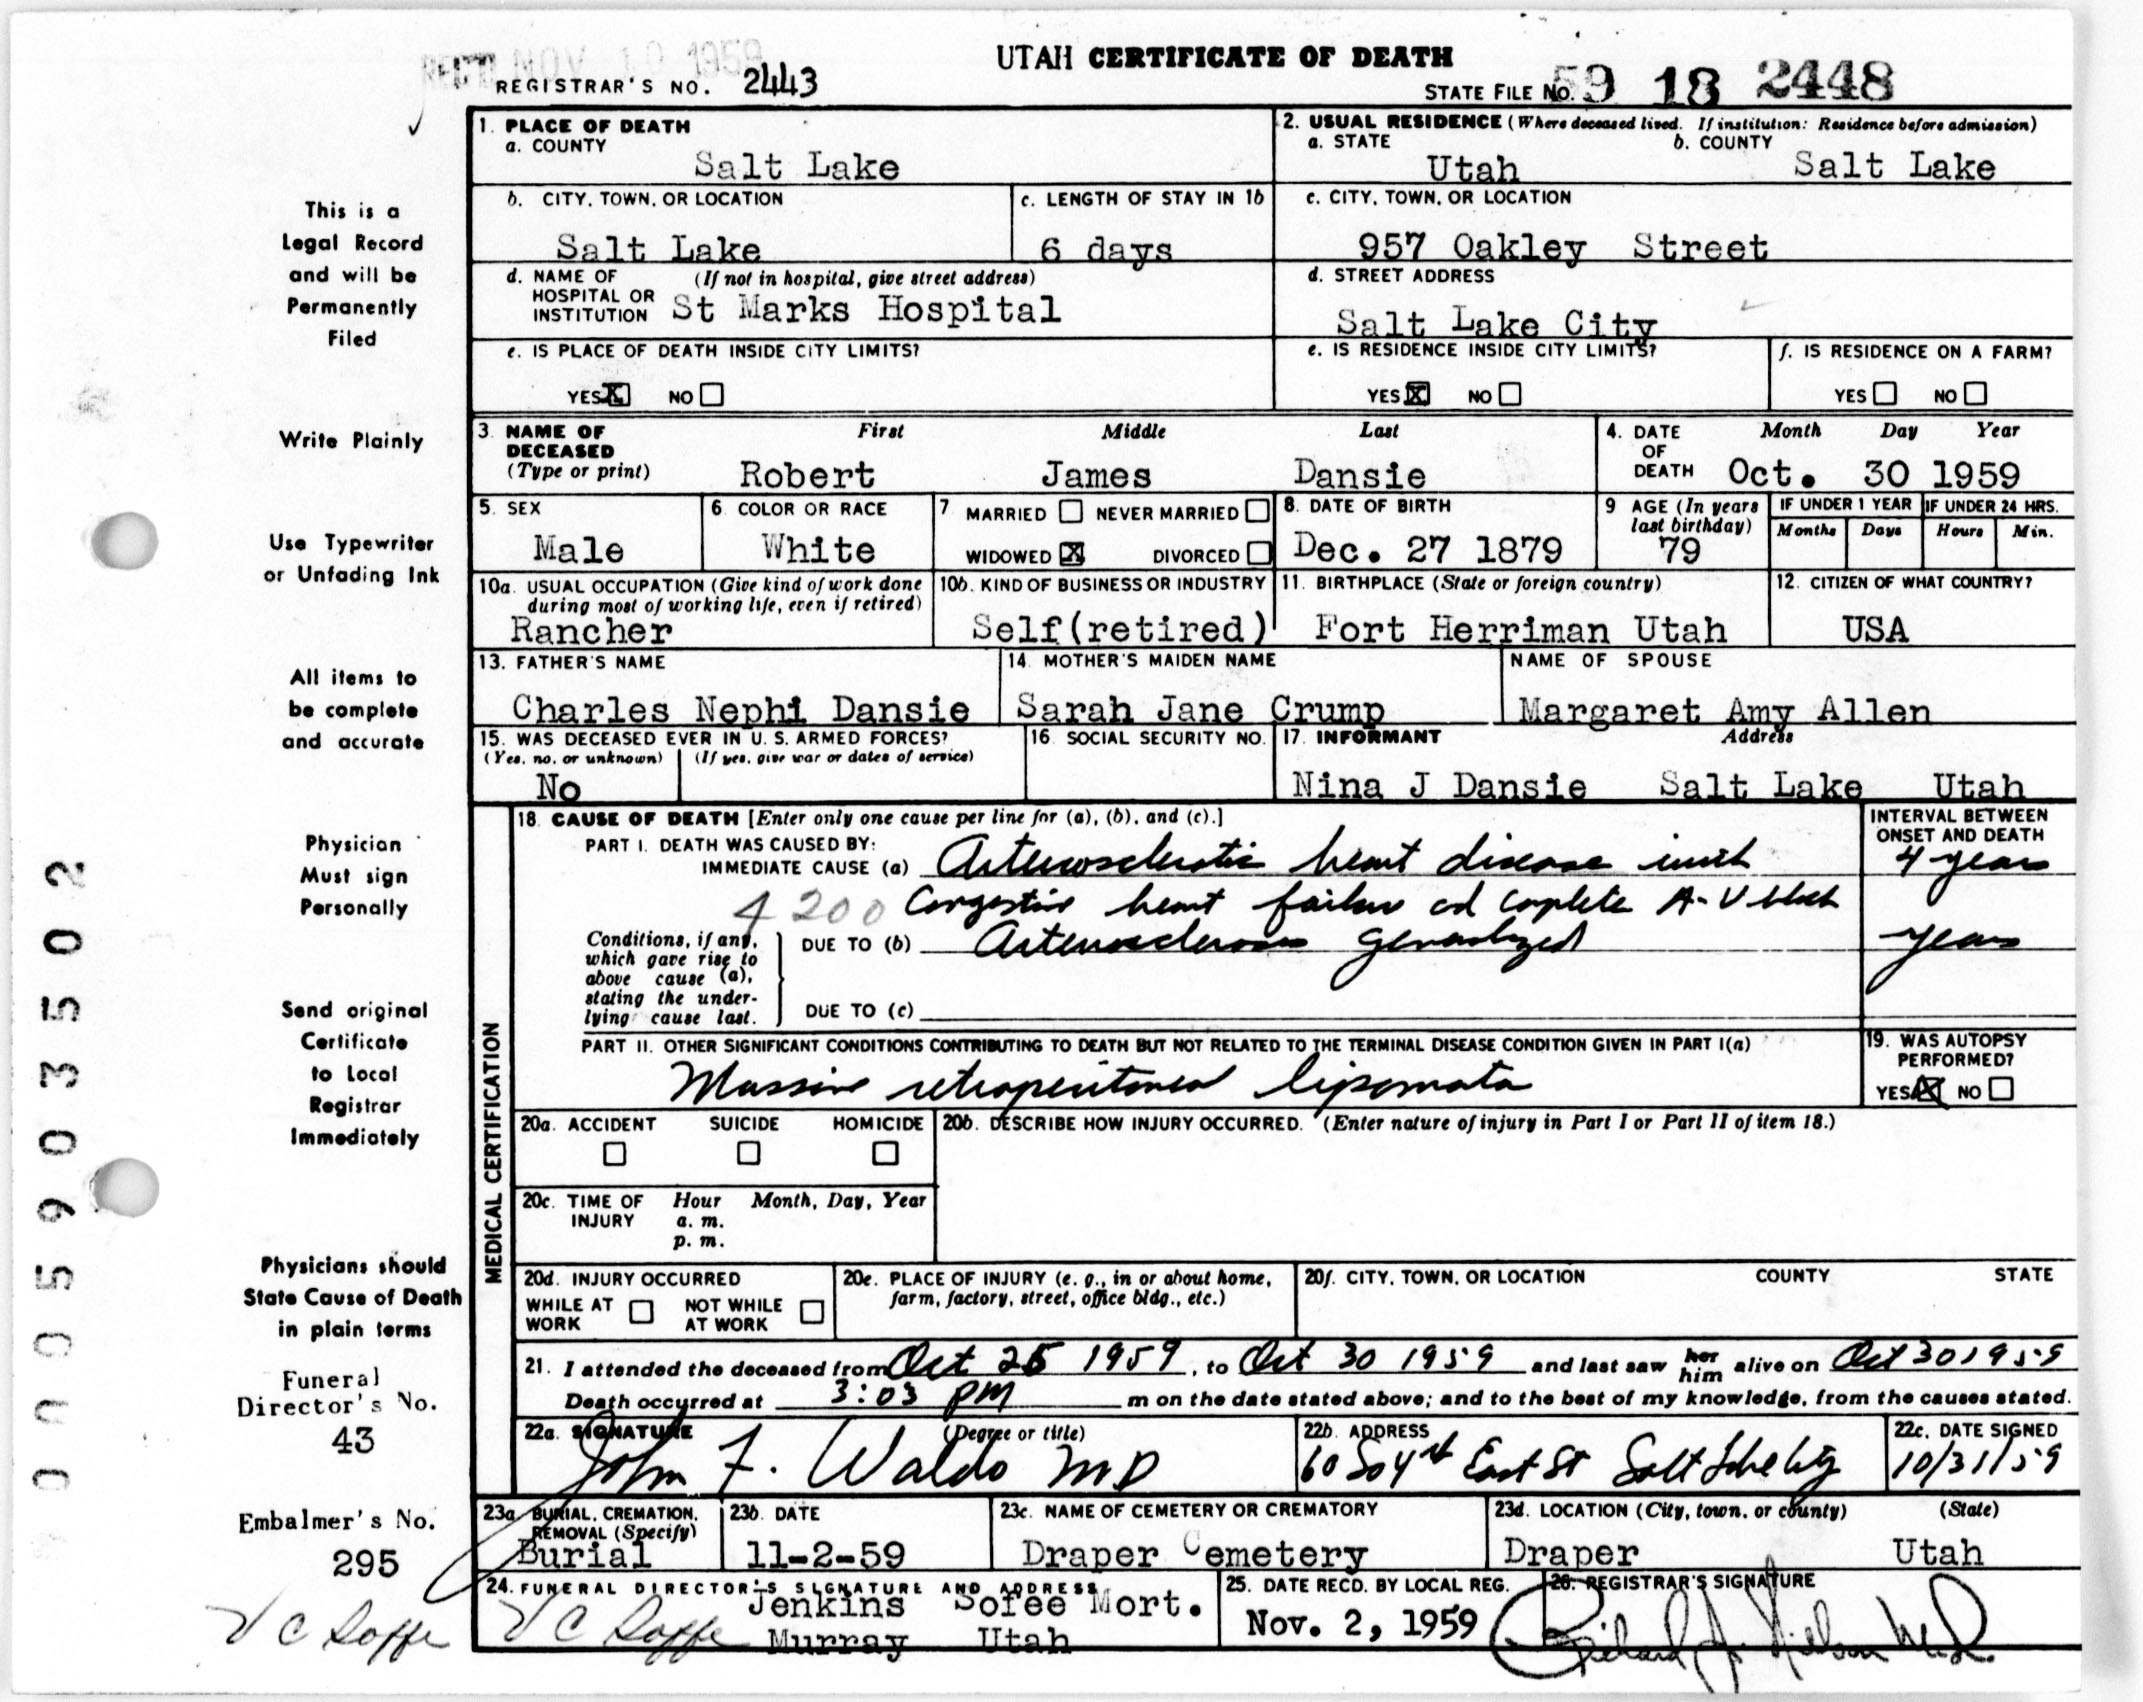 REC'D NOV 10 1959
UTAH CERTIFICATE OF DEATH
REGISTRAR'S NO. 2443
STATE FILE No. 59 18 2448
1. PLACE OF DEATH
a. COUNTY
Salt Lake
2. USUAL RESIDENCE (Where deceased lived. If institution: Residence before admission)
a. STATE b. COUNTY
Utah Salt Lake
b. CITY, TOWN, OR LOCATION
Salt Lake
c. LENGTH OF STAY IN 1b
6 days
c. CITY, TOWN, OR LOCATION
957 Oakley Street
d. NAME OF HOSPITAL OR INSTITUTION (If not in hospital, give street address)
St Marks Hospital
d. STREET ADDRESS
Salt Lake City
e. IS PLACE OF DEATH INSIDE CITY LIMITS?
YES X NO
e. IS RESIDENCE INSIDE CITY LIMITS?
YES X NO
f. IS RESIDENCE ON A FARM?
YES NO
3. NAME OF DECEASED (Type or print)
First Middle Last
Robert James Dansie
4. DATE OF DEATH
Month Day Year
Oct. 30 1959
5. SEX
Male
6. COLOR OR RACE
White
7 MARRIED NEVER MARRIED
WIDOWED X DIVORCED
8. DATE OF BIRTH
Dec. 27 1879
9 AGE (In years last birthday)
79
IF UNDER 1 YEAR
Months Days
IF UNDER 24 HRS.
Hours Min.
10a. USUAL OCCUPATION (Give kind of work done during most of working life, even if retired)
Rancher
10b. KIND OF BUSINESS OR INDUSTRY
Self(retired)
11. BIRTHPLACE (State or foreign country)
Fort Herriman Utah
12. CITIZEN OF WHAT COUNTRY?
USA
13. FATHER'S NAME
Charles Nephi Dansie
14. MOTHER'S MAIDEN NAME
Sarah Jane Crump
NAME OF SPOUSE
Margaret Amy Allen
15. WAS DECEASED EVER IN U. S. ARMED FORCES?
(Yes, no, or unknown) (If yes, give war or dates of service)
No
16. SOCIAL SECURITY NO.
17. INFORMANT Address
Nina J Dansie Salt Lake Utah
MEDICAL CERTIFICATION
18. CAUSE OF DEATH [Enter only one cause per line for (a), (b), and (c).]
INTERVAL BETWEEN ONSET AND DEATH
PART I. DEATH WAS CAUSED BY:
IMMEDIATE CAUSE (a) Arteriosclerotic heart disease with 4 years
4200 Congestive heart failure and complete A-V block
Conditions, if any, which gave rise to above cause (a), stating the underlying cause last.
DUE TO (b) Arteriosclerosis generalized years
DUE TO (c)
PART II. OTHER SIGNIFICANT CONDITIONS CONTRIBUTING TO DEATH BUT NOT RELATED TO THE TERMINAL DISEASE CONDITION GIVEN IN PART I(a)
Massive retroperitoneal lipomata
19. WAS AUTOPSY PERFORMED?
YES X NO
20a. ACCIDENT SUICIDE HOMICIDE
20b. DESCRIBE HOW INJURY OCCURRED. (Enter nature of injury in Part I or Part II of item 18.)
20c. TIME OF INJURY Hour Month, Day, Year
a. m.
p. m.
20d. INJURY OCCURRED
WHILE AT WORK NOT WHILE AT WORK
20e. PLACE OF INJURY (e. g., in or about home, farm, factory, street, office bldg., etc.)
20f. CITY, TOWN, OR LOCATION COUNTY STATE
21. I attended the deceased from Oct 25 1959, to Oct 30 1959 and last saw her him alive on Oct 30 1959
Death occurred at 3:03 PM m on the date stated above; and to the best of my knowledge, from the causes stated.
22a. SIGNATURE (Degree or title)
John F. Waldo MD
22b. ADDRESS
60 So 4th East St Salt Lake City
22c. DATE SIGNED
10/31/59
23a. BURIAL, CREMATION, REMOVAL (Specify)
Burial
23b. DATE
11-2-59
23c. NAME OF CEMETERY OR CREMATORY
Draper Cemetery
23d. LOCATION (City, town, or county) (State)
Draper Utah
24. FUNERAL DIRECTOR'S SIGNATURE AND ADDRESS
Jenkins Sofee Mort.
Murray Utah
25. DATE RECD. BY LOCAL REG.
Nov. 2, 1959
26. REGISTRAR'S SIGNATURE
This is a
Legal Record
and will be
Permanently
Filed
Write Plainly
Use Typewriter
or Unfading Ink
All items to
be complete
and accurate
Physician
Must sign
Personally
Send original
Certificate
to Local
Registrar
Immediately
Physicians should
State Cause of Death
in plain terms
Funeral
Director's No.
43
Embalmer's No.
295
000590303502